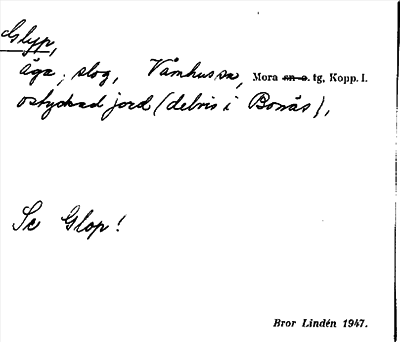 Glyp,
äga; slog, Våmhus sn, Mora sn o. tg, Kopp. l.
ostyckad jord (delvis i Bonäs),
Se Glop!
Bror Lindén 1947.